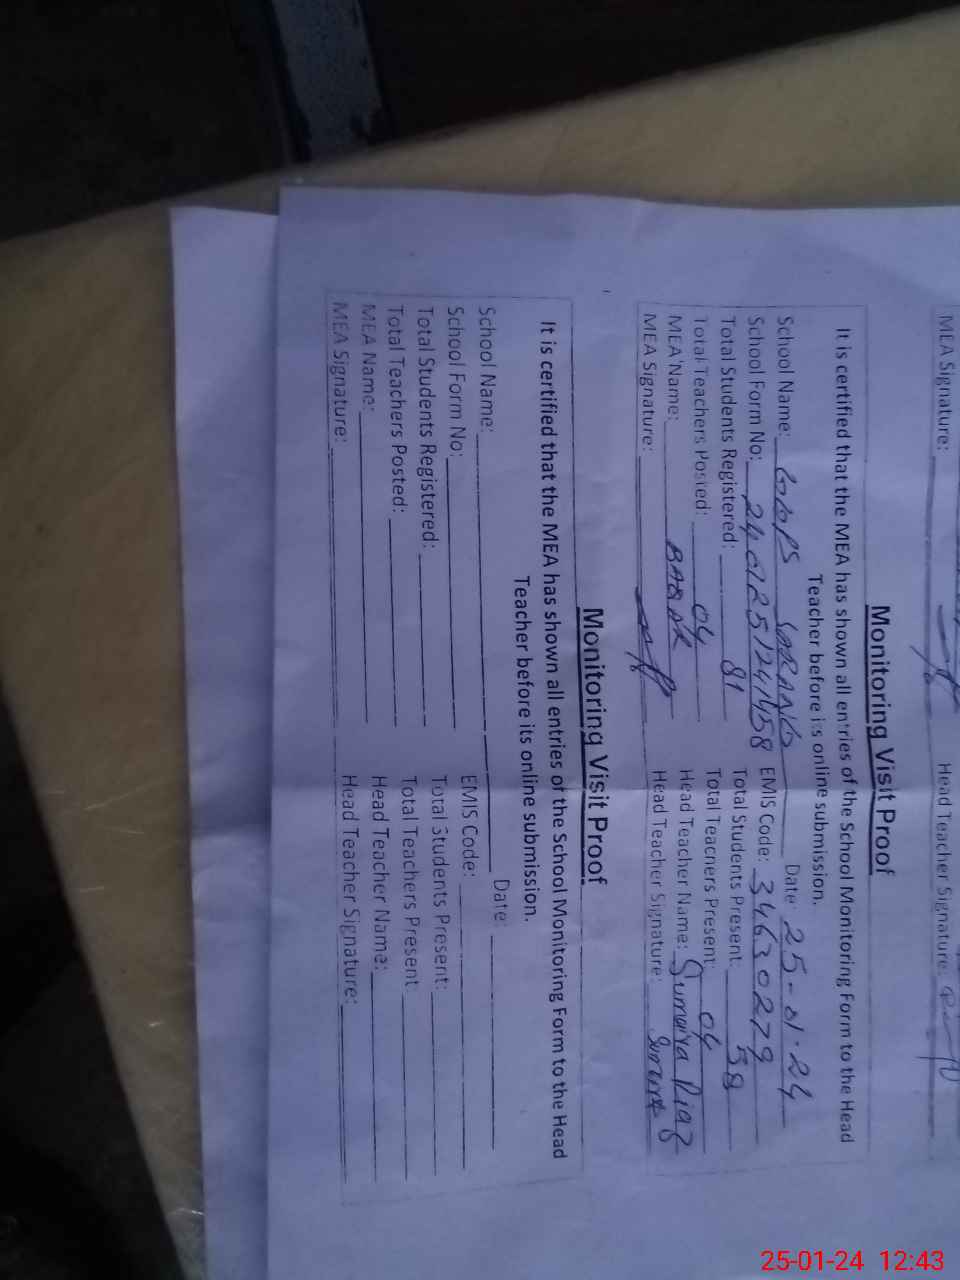 MEA Signature: Head Teacher Signature:
Monitoring Visit Proof
It is certified that the MEA has shown all entries of the School Monitoring Form to the Head
Teacher before its online submission.
School Name: GGPS SARANG Date: 25-01-24
School Form No: EMIS Code: 34630279
Total Students Registered: 81 Total Students Present: 58
Total Teachers Posted: 04 Total Teachers Present: 04
MEA Name: BABAR Head Teacher Name: Sumaira Riaz
MEA Signature: Head Teacher Signature:
Monitoring Visit Proof
It is certified that the MEA has shown all entries of the School Monitoring Form to the Head
Teacher before its online submission.
School Name: Date:
School Form No: EMIS Code:
Total Students Registered: Total Students Present:
Total Teachers Posted: Total Teachers Present:
MEA Name: Head Teacher Name:
MEA Signature: Head Teacher Signature:
25-01-24 12:43